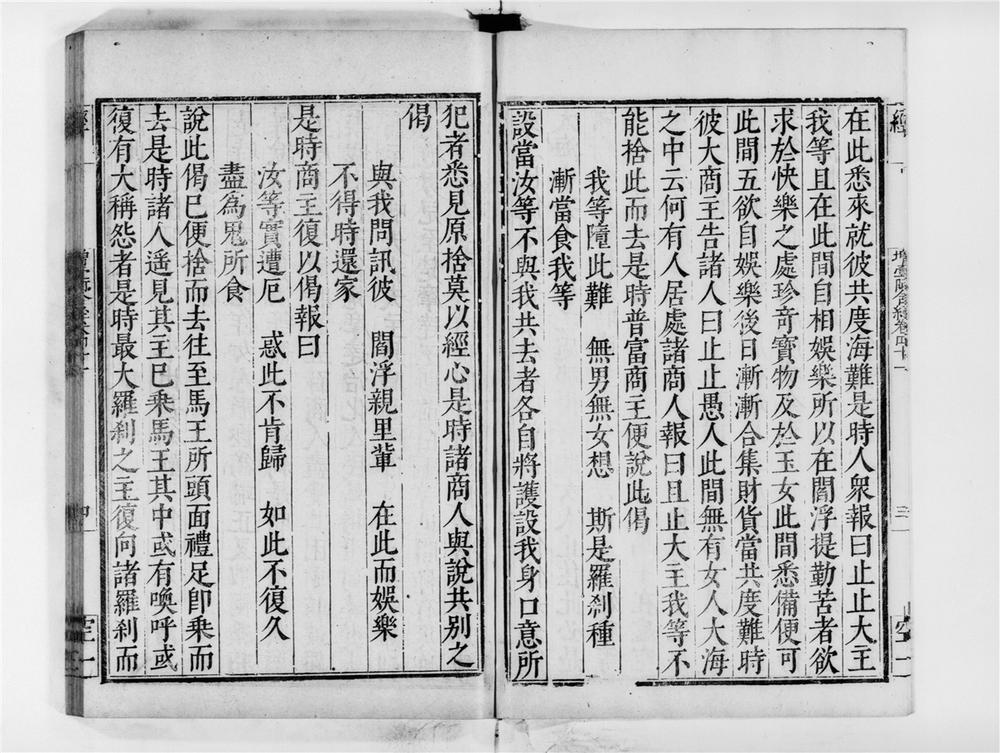 在此悉來就彼共度海難是時人衆報曰止止大主
我等且在此間自相娛樂所以在閻浮提勤苦者欲
求於快樂之處珍奇寶物及於玉女此間悉備便可
此間五欲自娛樂後日漸漸合集財貨當共度難時
彼大商主告諸人曰止止愚人此間無有女人大海
之中云何有人居處諸商人報曰且止大主我等不
能捨此而去是時普富商主便說此偈
我等墮此難　無男無女想　斯是羅剎種
漸當食我等
設當汝等不與我共去者各自將護設我身口意所
犯者悉見原捨莫以經心是時諸商人與說共別之
偈
與我問訊彼　閻浮親里輩　在此而娛樂
不得時還家
是時商主復以偈報曰
汝等實遭厄　惑此不肯歸　如此不復久
盡為鬼所食
說此偈已便捨而去往至馬王所頭面禮足卽乘而
去是時諸人遙見其主已乘馬王其中或有喚呼或
復有大稱怨者是時最大羅剎之主復向諸羅剎而